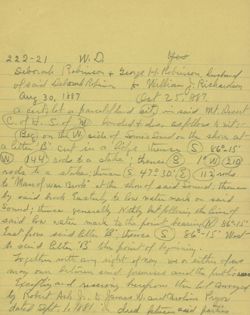 222-21 W.D. Yes
Deborah Robinson & George H. Robinson husband
of said Deborah Robinson to William J. Richardson
Aug 30, 1887 Oct 25, 1887
a certain lot or parcel of land in said Mt. Desert
C of H. S of M bounded & des. as follows to wit:-
Beg on the W side of Somes Sound on the shore at
a letter "B" cut in a ledge thence S 86°-15'
W 144 rods to a stake; thence
rods to a stake; thence S 47°30' E 112 rods
to "Man of War Brook" at the shore of said Sound; thence
by said brook Easterly to low water mark on said
Sound; thence generally Northly but following the line of
said low water mark to the point bearing N 86°-15'
East from said letter "B"; thence S 86°-15' West
to said letter "B" the point of beginning.
Together with any right of way we or either of us
may own between said premises and the public
Excepting and reserving herefrom the lot conveyed
by Robert Ash Jr. to James and Caroline Pryor
dated Sept. 1, 1881 deed between said parties